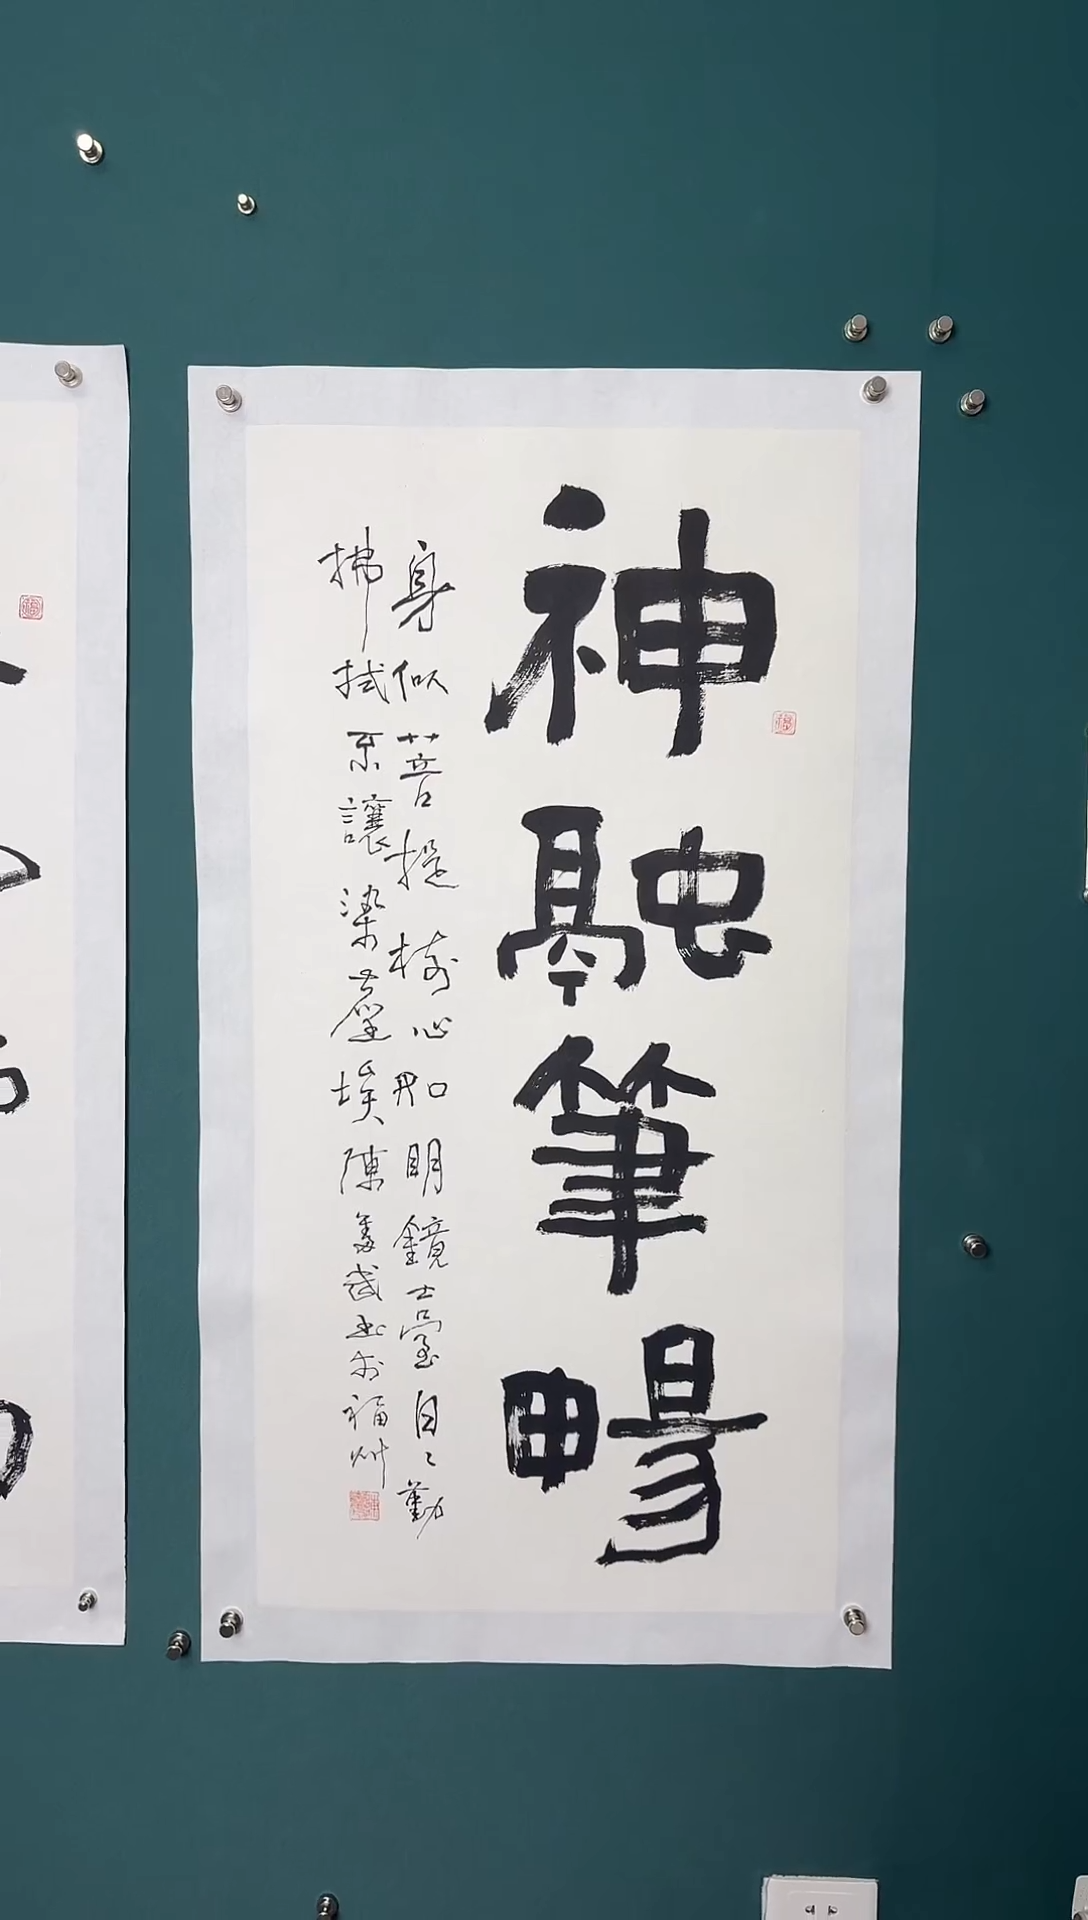 神融筆暢
身似菩提樹心如明鏡臺日〻勤
拂拭不讓染塵埃陳奮武书於福州